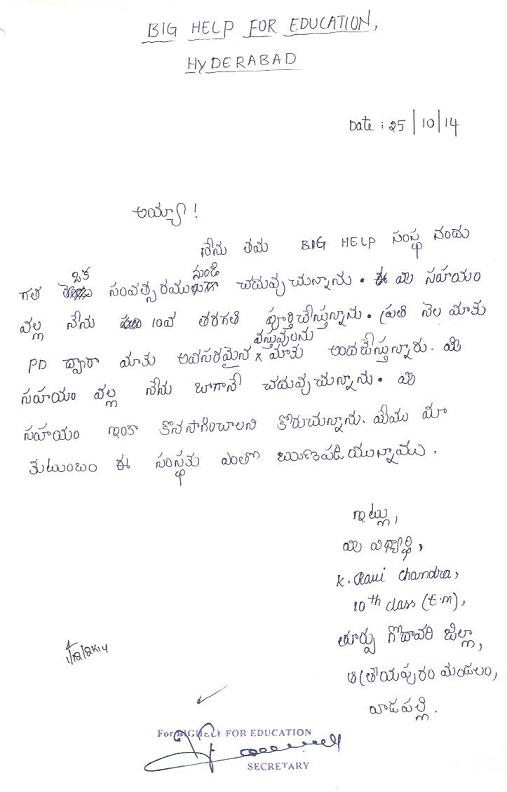 BIG HELP FOR EDUCATION,
HYDERABAD
Date : 25/10/14
అయ్యా !
నేను తమ BIG HELP సంస్థ నందు
గత ఒక సంవత్సరము నుండి చదువుచున్నాను. మీ సహాయం
వల్ల నేను 10వ తరగతి పూర్తిచేస్తున్నాను. ప్రతి నెల మాకు
PD ద్వారా మాకు అవసరమైన వస్తువులను మాకు అందచేస్తున్నారు. మీ
సహాయం వల్ల నేను బాగానే చదువుచున్నాను. మీ
సహాయం ఇంకా కొనసాగించాలని కోరుచున్నాను. మేము మా
కుటుంబం ఈ సంస్థకు ఎంతో ఋణపడియున్నాము.
ఇట్లు,
మీ విద్యార్థి,
K. Ravi Chandra,
10th class (E.M),
తూర్పు గోదావరి జిల్లా,
ఆత్రేయపురం మండలం,
వాడపల్లి.
For BIGHELP FOR EDUCATION
SECRETARY